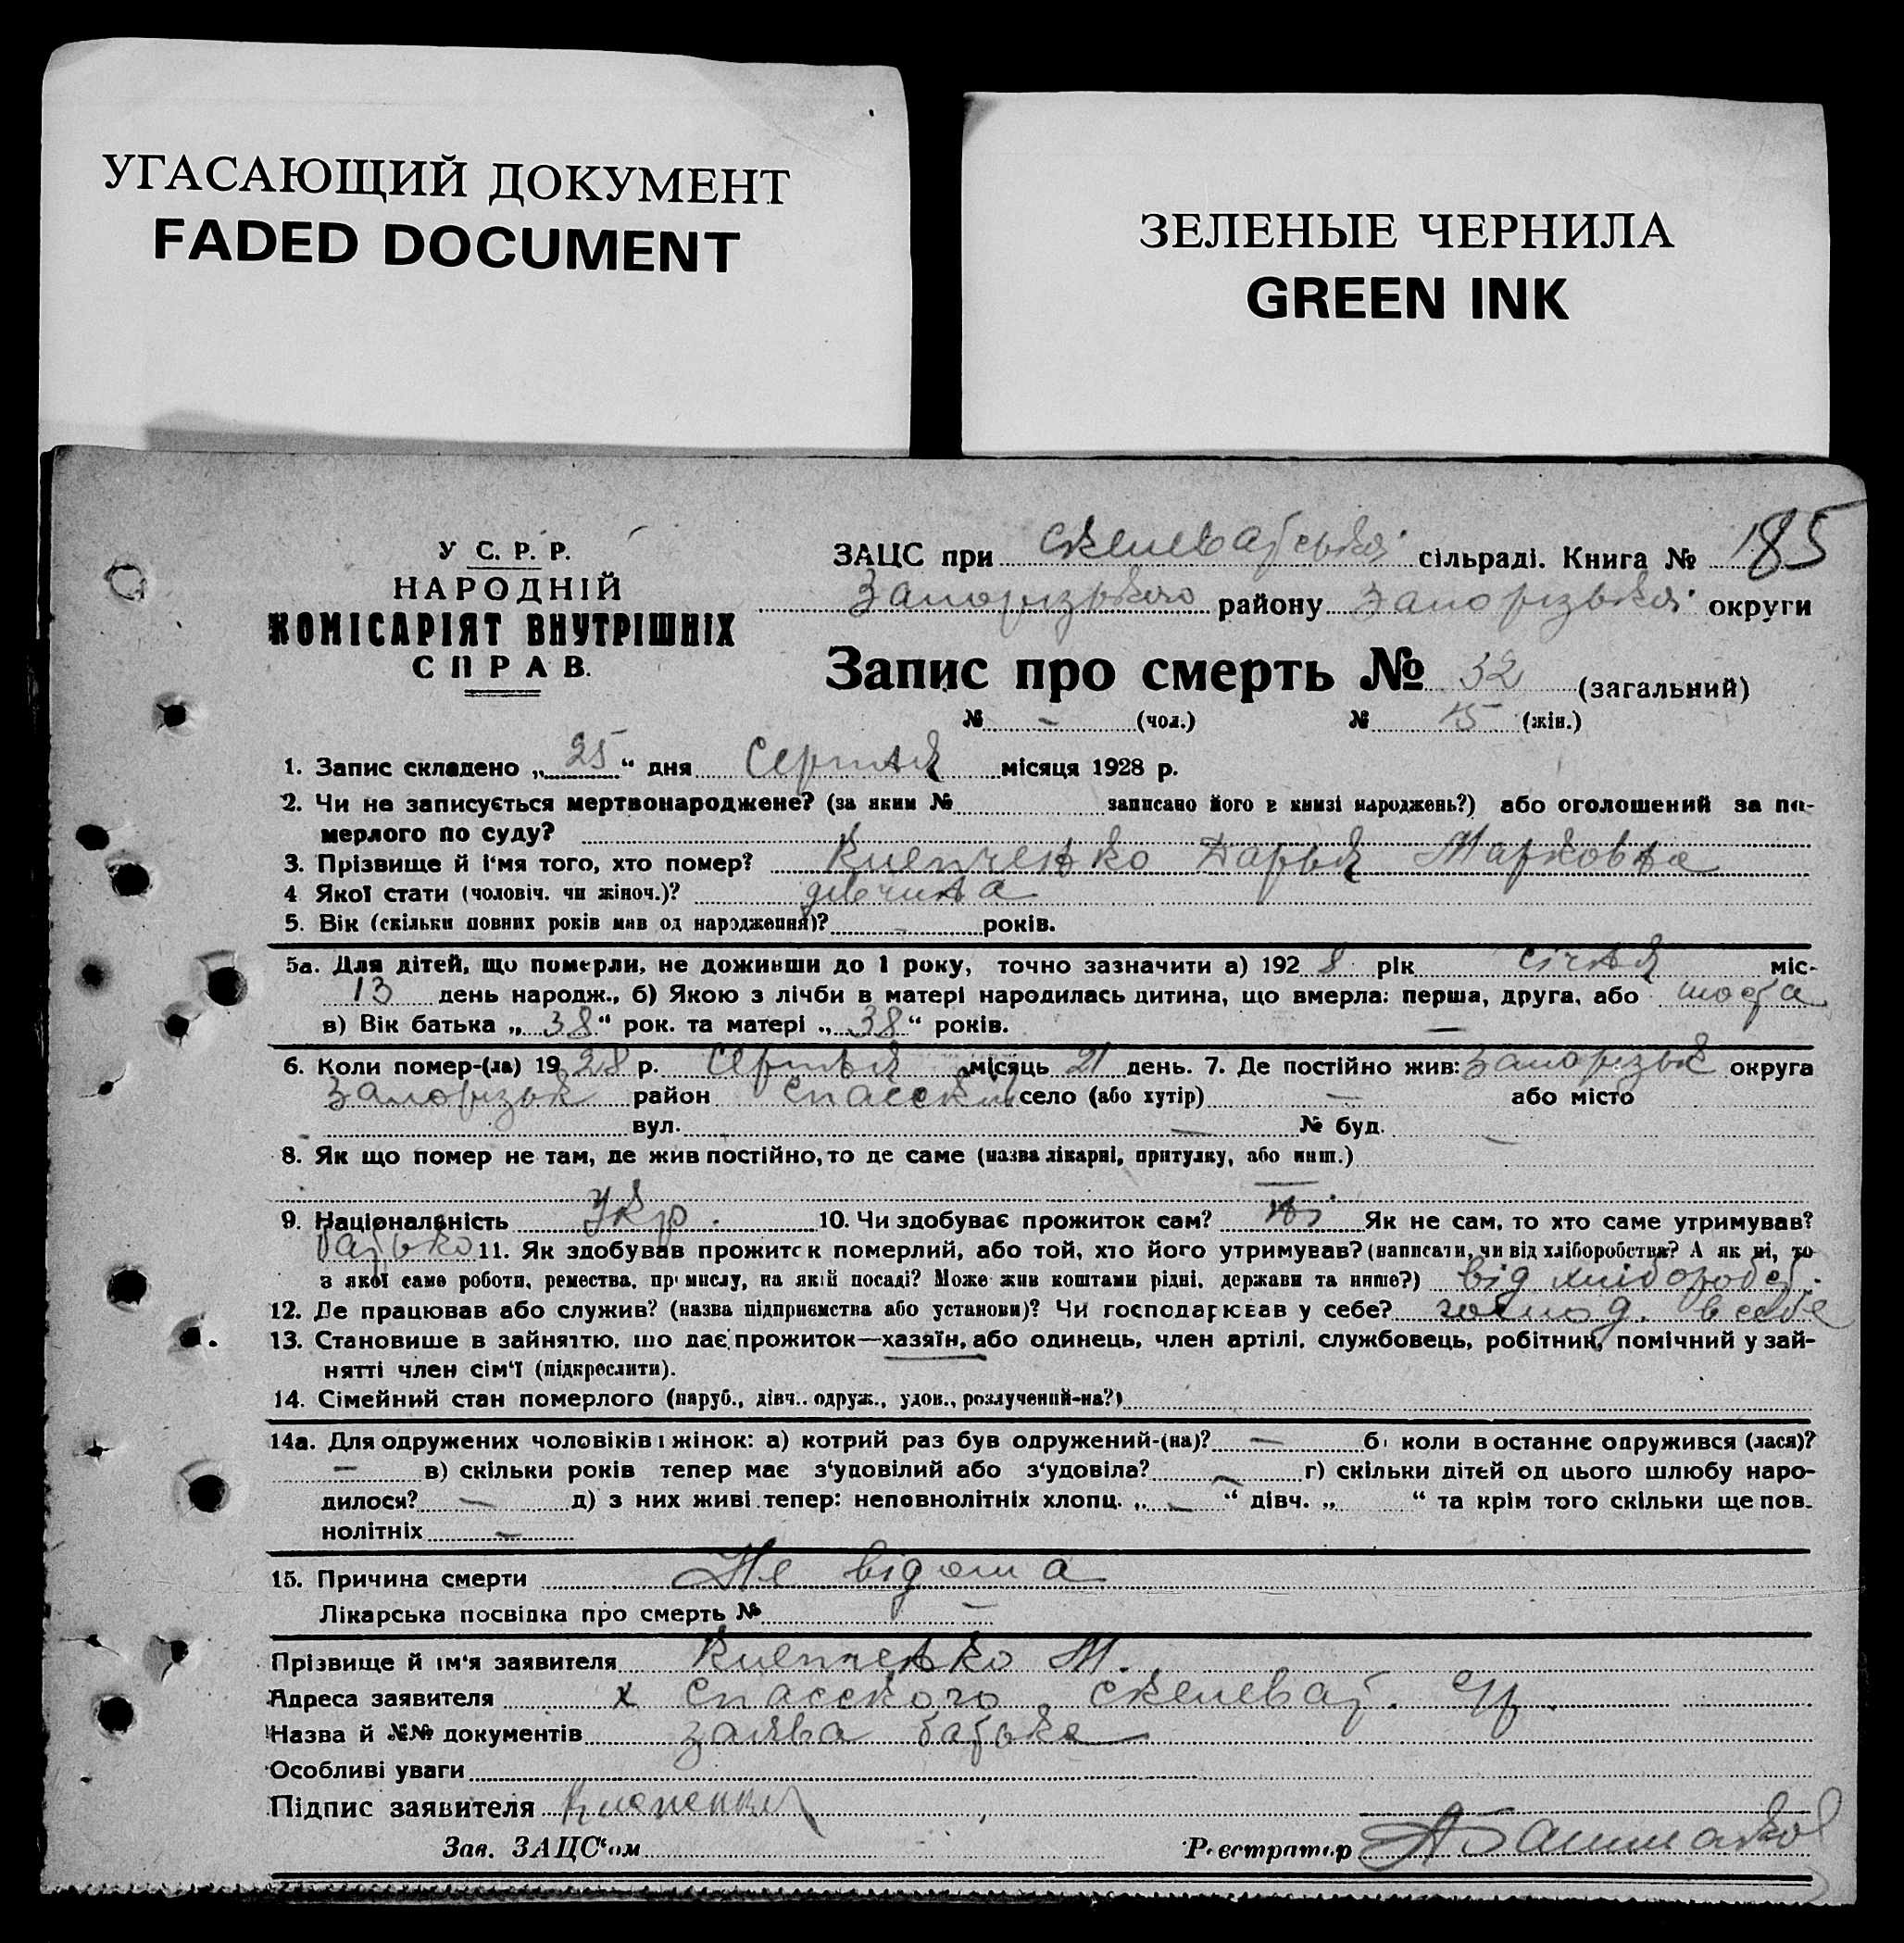 УГАСАЮЩИЙ ДОКУМЕНТ
FADED DOCUMENT
ЗЕЛЕНЫЕ ЧЕРНИЛА
GREEN INK
У С. Р. Р.
НАРОДНІЙ
КОМІСАРІЯТ ВНУТРІШНІХ
СПРАВ.
ЗАЦС при Скелеватської сільраді. Книга № 185
Запорізького району Запорізької округи
Запис про смерть № 32 (загальний)
№ – (чол.) № 15 (жін.)
1. Запис складено „ 25 “ дня Серпня місяця 1928 р.
2. Чи не записується мертвонароджене? (за яким № записано його в книзі народжень?) або оголошений за по-
мерлого по суду?
3. Прізвище й і‘мя того, хто помер? Клепченко Дарья Марковна
4 Якої стати (чоловіч. чи жіноч.)? дівчина
5. Вік (скільки повних років мав од народження)? – років.
5а. Для дітей, що померли, не доживши до 1 року, точно зазначити а) 192 8 рік січня міс-
13 день народж., б) Якою з лічби в матері народилась дитина, що вмерла: перша, друга, або шоста
в) Вік батька „ 38 “ рок. та матері „ 38 “ років. –
6. Коли помер-(ла) 19 28 р. Серпня місяць 21 день. 7. Де постійно жив: Запорізьк округа
Запорізьк район Спасский село (або хутір) – або місто
вул. – № буд. –
8. Як що помер не там, де жив постійно, то де саме (назва лікарні, притулку, або инш.)
–
9. Національність Укр. 10. Чи здобуває прожиток сам? ні Як не сам, то хто саме утримував?
батько 11. Як здобував прожиток померлий, або той, хто його утримував? (написати, чи від хліборобства? А як ні, то
з якої саме роботи, ремества, промислу, на якій посаді? Може жив коштами рідні, держави та инше?) від хлібороб.
12. Де працював або служив? (назва підприємства або установи)? Чи господарював у себе? господ. в себе
13. Становише в зайняттю, що дає прожиток—хазяїн, або одинець, член артілі, службовець, робітник, помічний у зай-
нятті член сім‘ї (підкреслити).
14. Сімейний стан померлого (паруб., дівч.. одруж., удов., розлучений-на?)
14а. Для одружених чоловіків і жінок: а) котрий раз був одружений-(на)? – б) коли в останнє одружився (лася)?
– в) скільки років тепер має з‘уповілий або з‘удовіла? – г) скільки дітей од цього шлюбу наро-
дилося? – д) з них живі тепер: неповнолітніх хлопц. „ – “ дівч. „ “ та крім того скільки ще пов.
нолітніх –
15. Причина смерти Не відома
Лікарська посвідка про смерть № –
Прізвище й ім‘я заявителя Клепченко М.
Адреса заявителя х Спасского, Скелеват. С/р.
Назва й №№ документів заява батька
Особливі уваги
Підпис заявителя
Зав. ЗАЦС‘ом Реєстратор